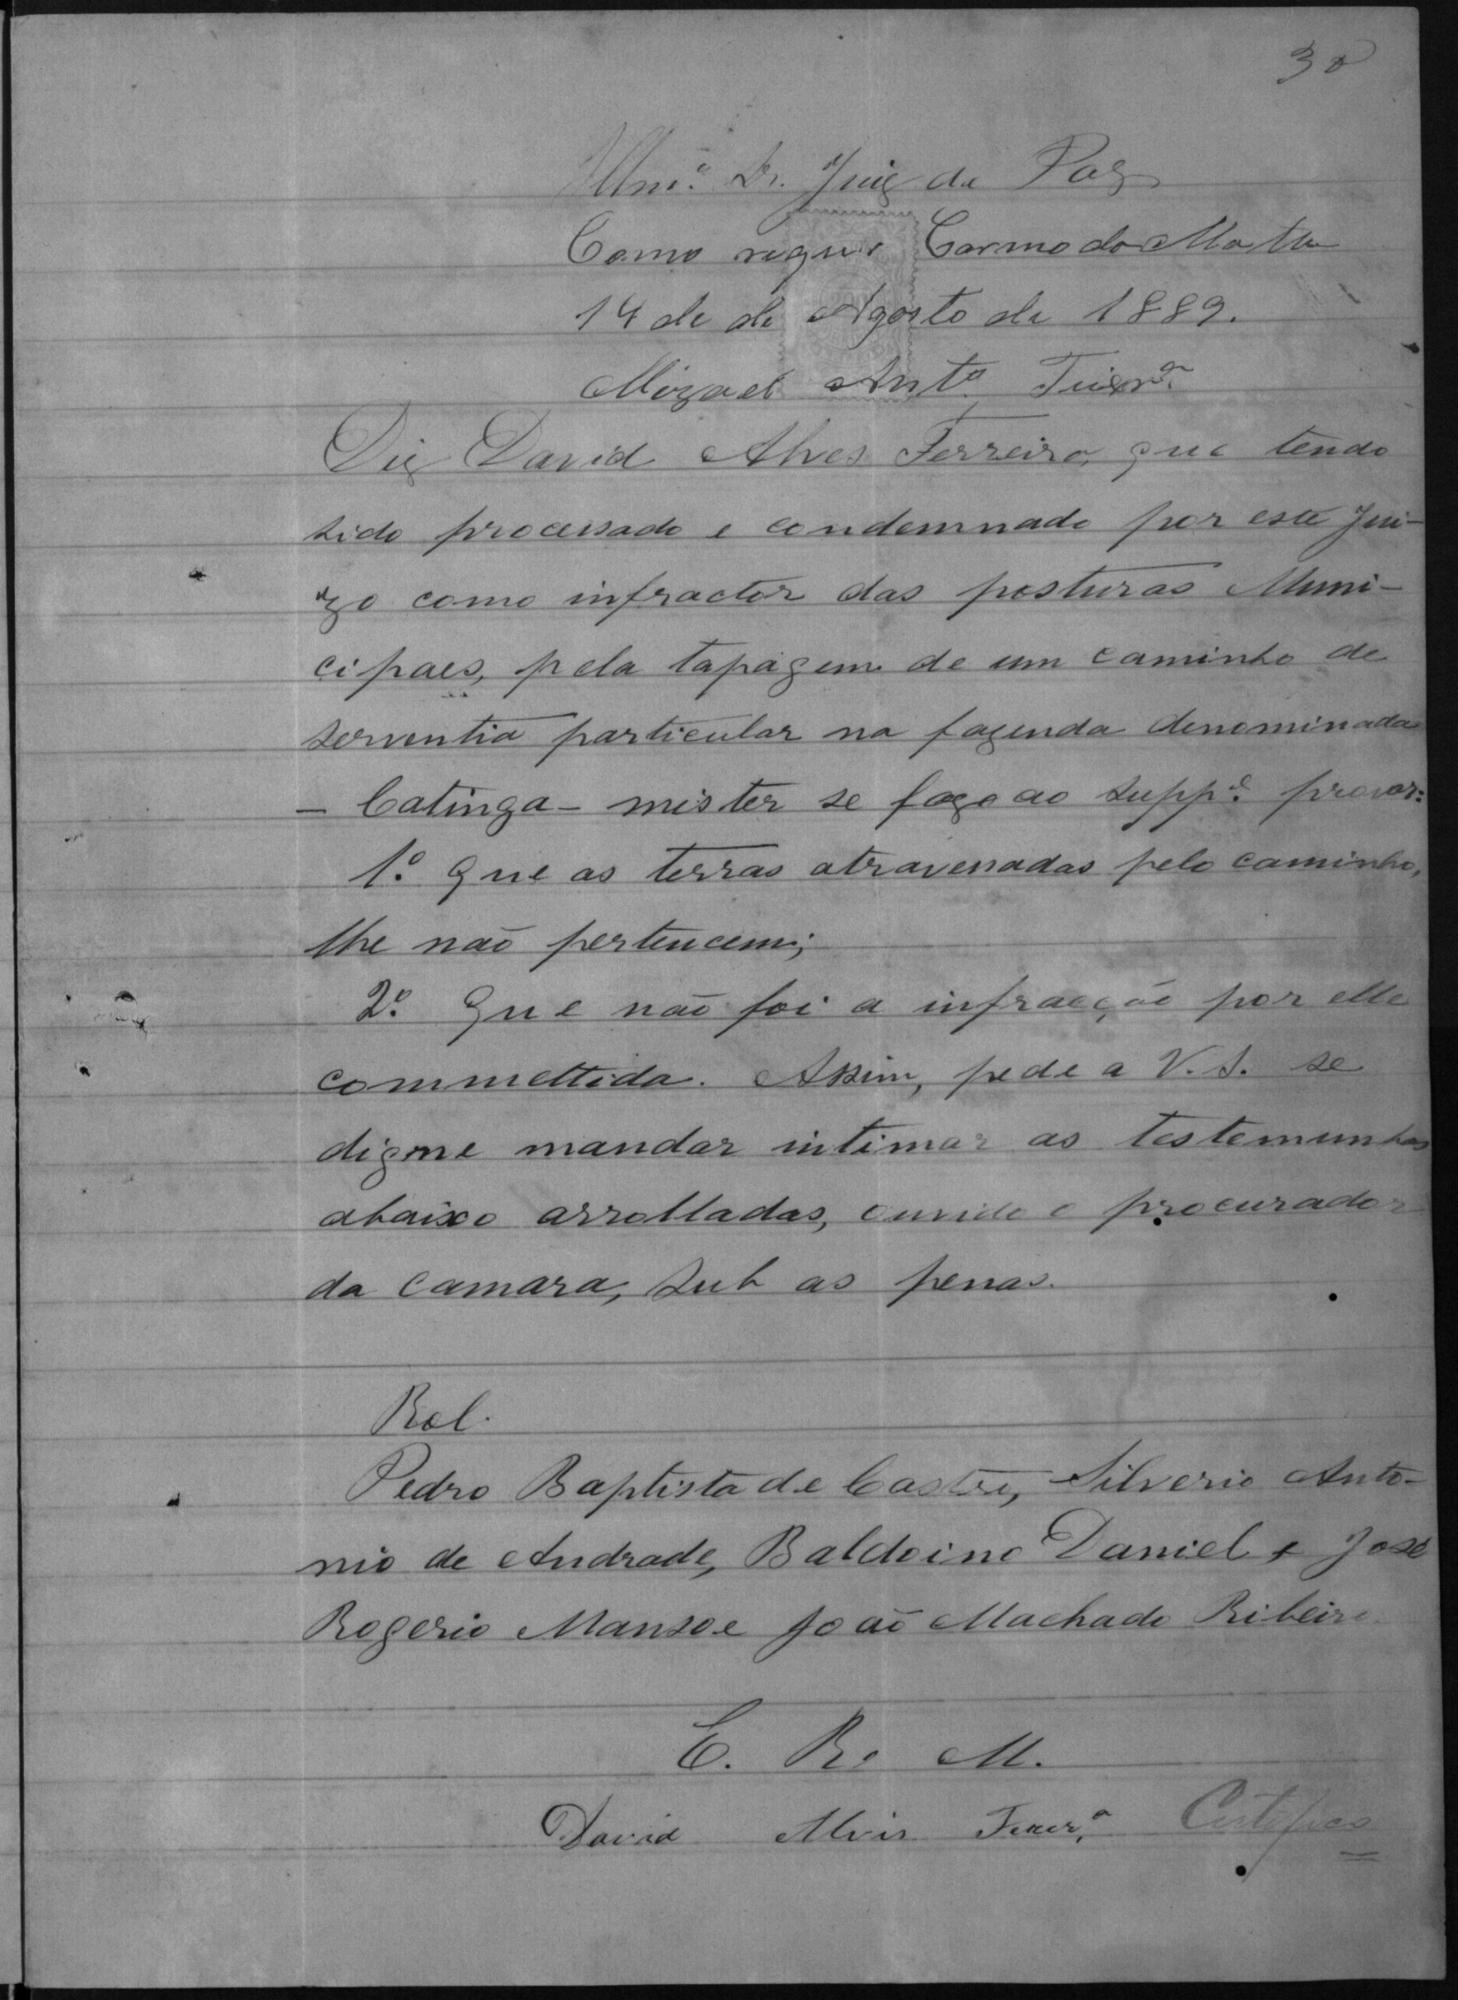 30
Illmo. Sr. Juiz de Paz
Como requer Carmo da Matta
14 de de Agosto de 1889.
Mizael Anto. Teixra.
Diz David Alves Ferreira, que tendo
sido processado e condemnado por este Jui-
zo como infractor das posturas Muni-
cipaes, pela tapagem de um caminho de
serventia particular na fazenda denominada
– Catinga – mister se faz ao suppe. provar:
1.º Que as terras atravessadas pelo caminho,
lhe não pertencem;
2.º Que não foi a infracção por elle
commettida. Assim, pede a V. S. se
digne mandar intimar as testemunhas
abaixo arrolladas, ouvido o procurador
da camara, sub as penas.
Rol.
Pedro Baptista de Castro, Silverio Anto-
nio de Andrade, Baldoino Daniel e José
Rogerio Manso e João Machado Ribeiro
E. R. M.
David Alvis Ferrera. Certifico